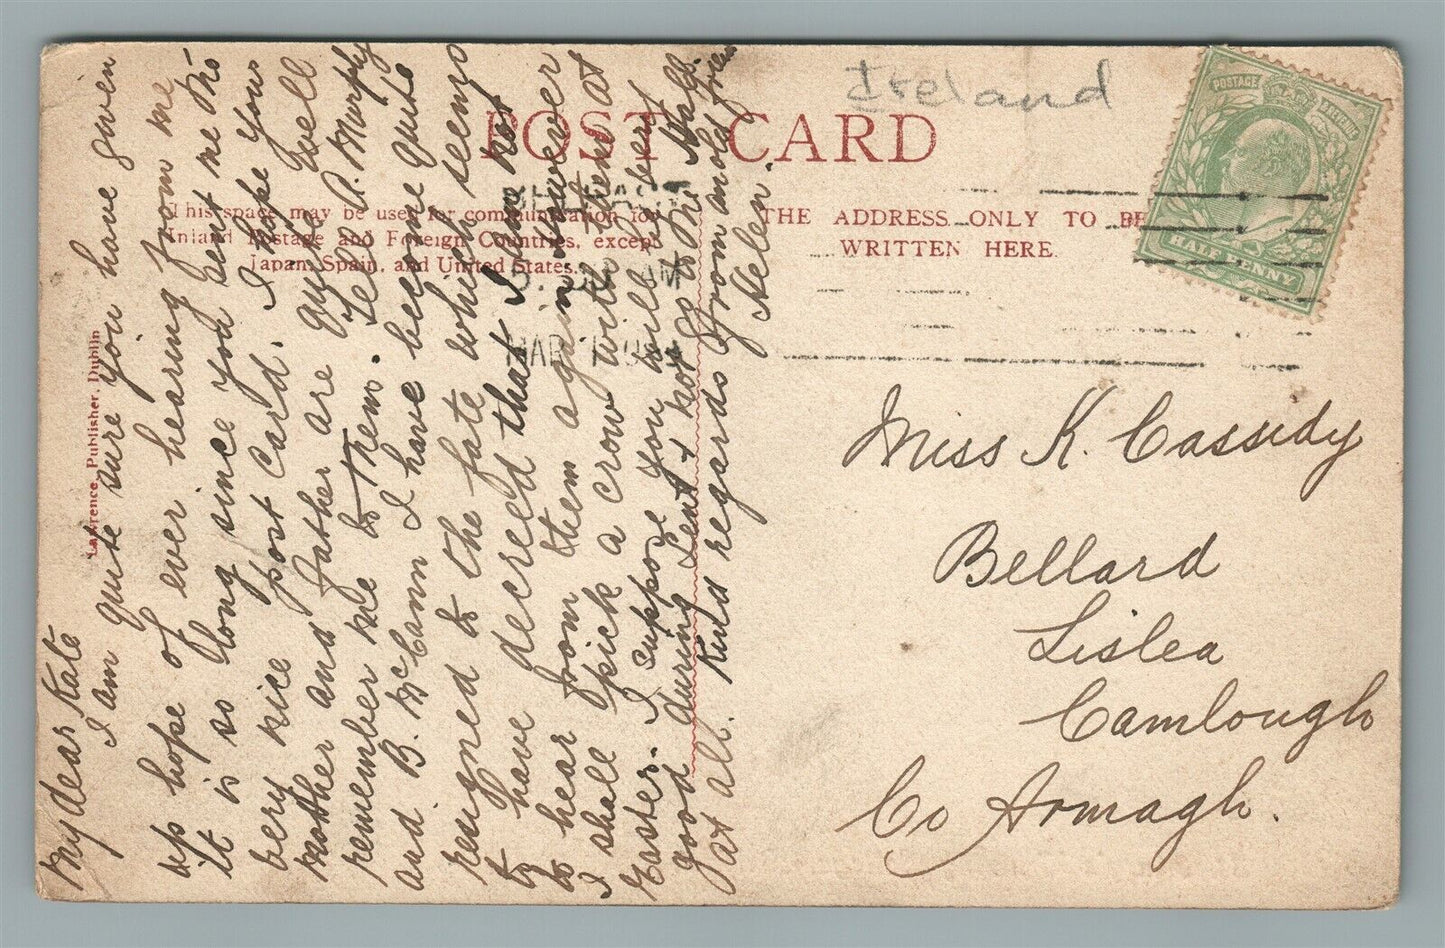 Ireland
POST CARD
This space may be used for communication for
Inland Postage and Foreign Countries, except
Japan, Spain, and United States.
THE ADDRESS ONLY TO BE
WRITTEN HERE
POSTAGE REVENUE
HALF PENNY
BELFAST
AM
MAR 1
Lawrence, Publisher, Dublin
My dear Kate
I am quite sure you have given
up hope of ever hearing from me
it is so long since you sent me the
very nice post card. I hope your
mother and father are quite well
remember me to them. Tell A. Murphy
and B. McCann I have become quite
resigned to the fate which seems
to have decreed that I am not
to hear from them again however
I shall pick a crow with them at
Easter. I suppose you will be very
good during Lent & not go to the Hall
at all. Kind regards from
Helen.
Miss K. Cassidy
Bellard
Lislea
Camlough
Co Armagh.